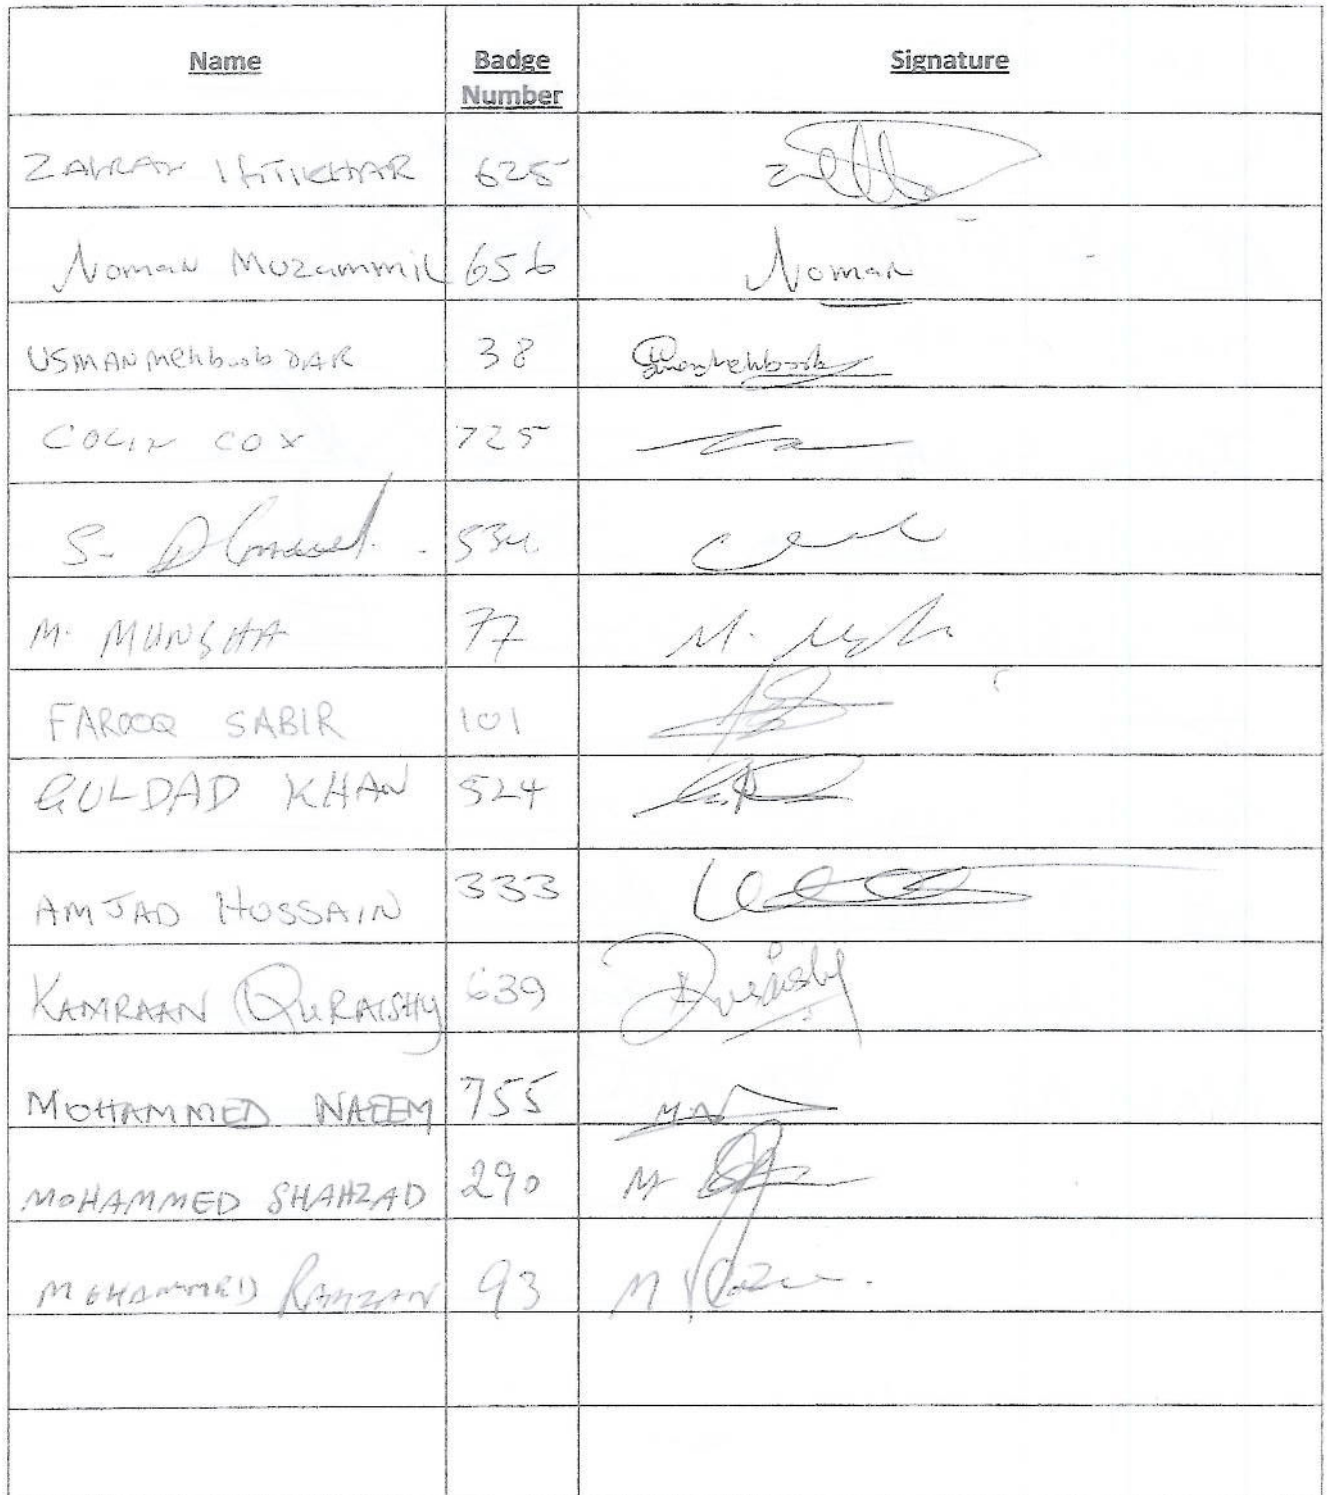 Name Badge Signature
Number
ZAFRAN IFTIKHAR 625
Noman Muzammil 656 Noman
USMAN Mehboob DAR 38
COLIN COX 725
S. 534
M. MUNSHA 77 M.
FAROOQ SABIR 101
GULDAD KHAN 524
AMJAD HUSSAIN 333
KAMRAAN QURAISHY 639 Quraishy
MOHAMMED NAEEM 755 M.N
MOHAMMED SHAHZAD 290 M
MOHAMMED RAMZAN 93 M